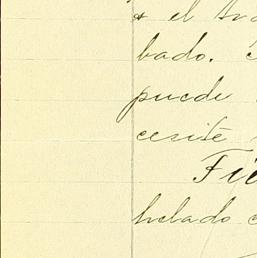 & el tra
bado.
puede
cesite
Fie
helado c